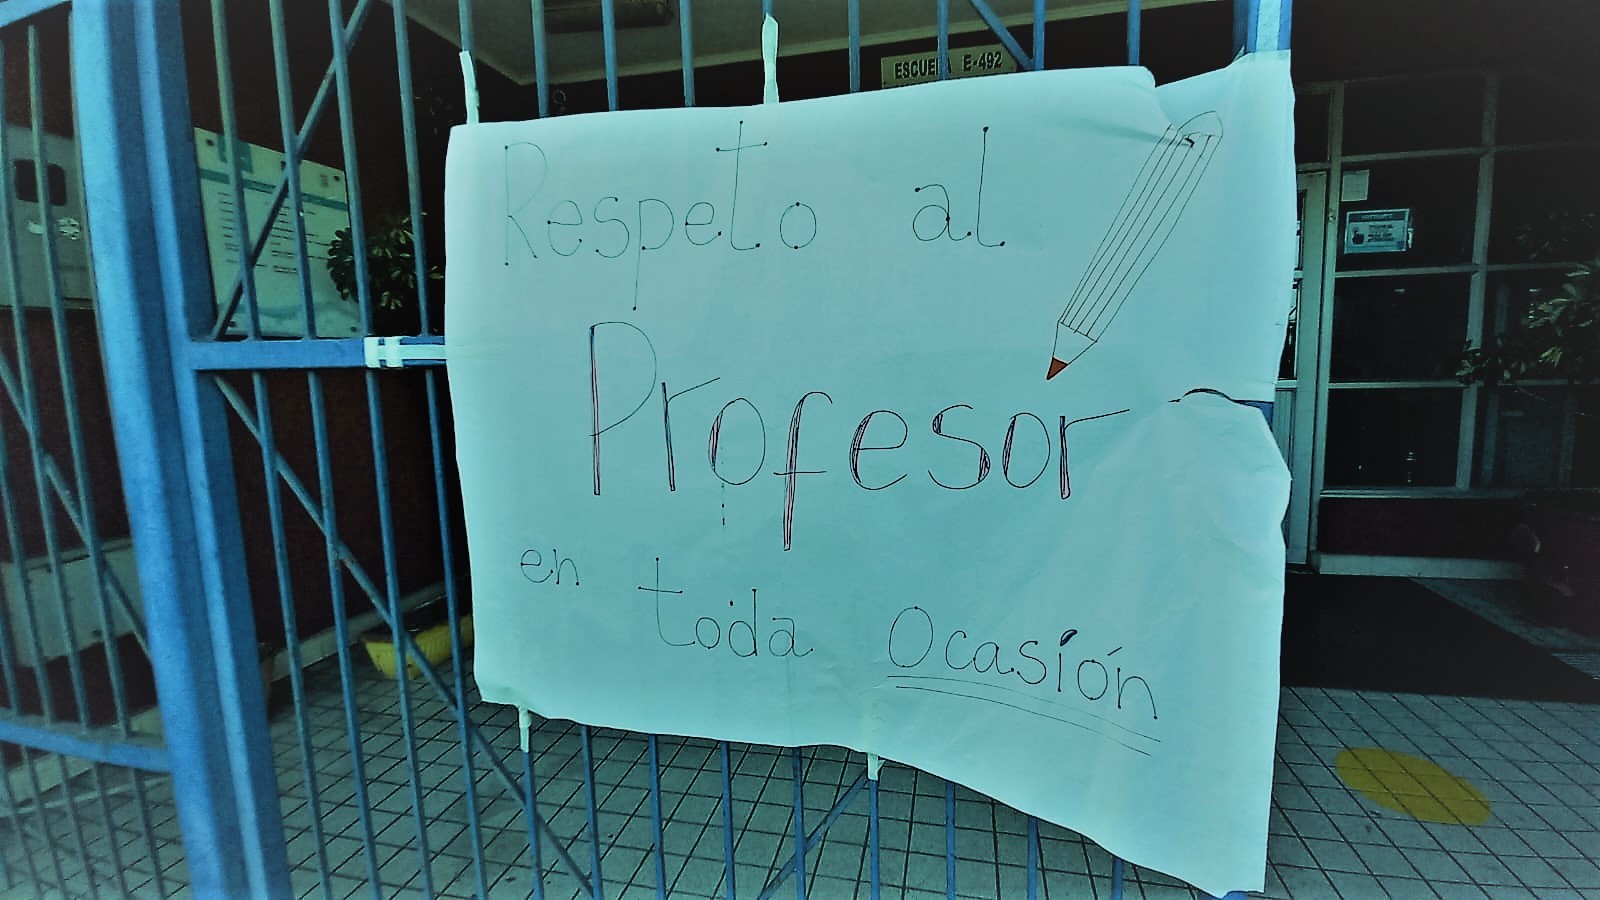 ESCUELA E-492
Respeto al
Profesor
en toda Ocasión